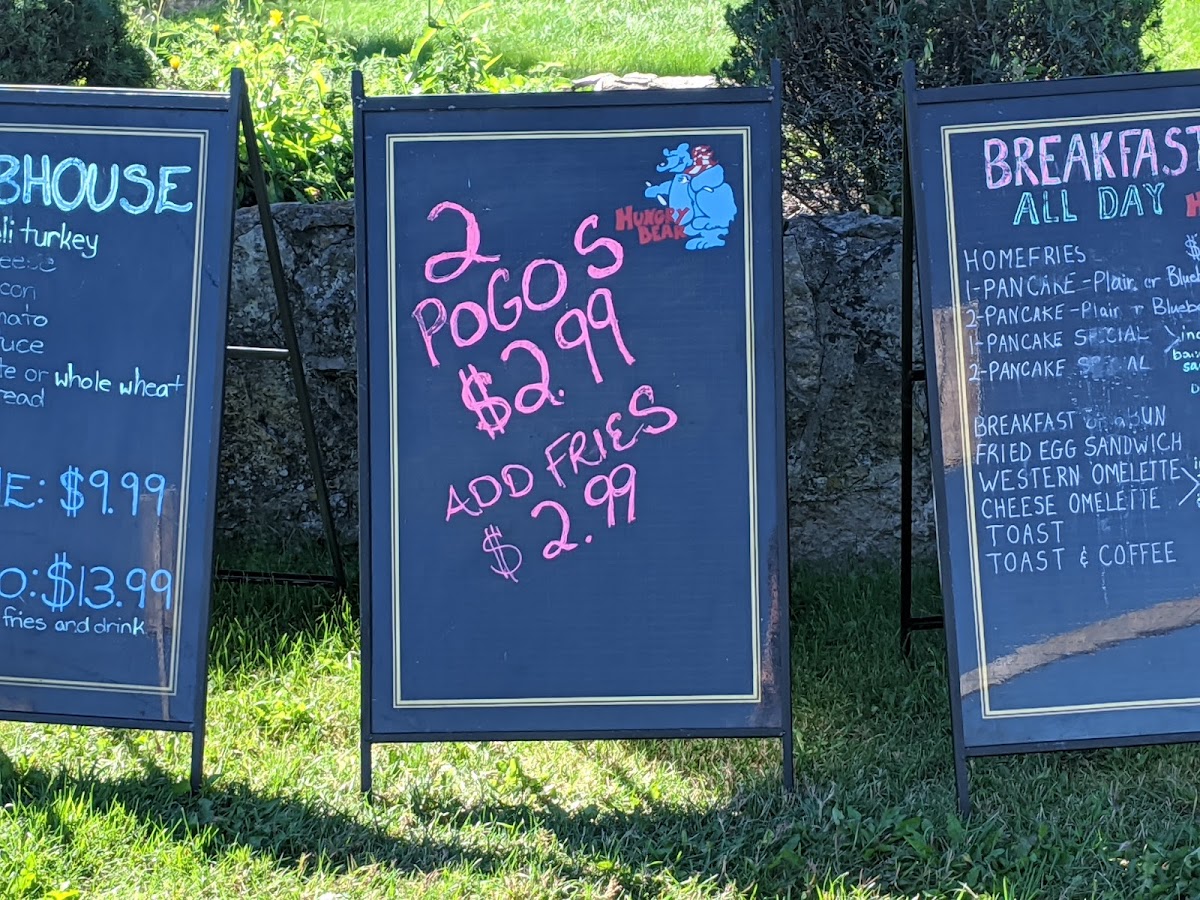 BHOUSE
li turkey
eese
con
mato
uce
te or whole wheat
ead
E: $9.99
O: $13.99
fries and drink
HUNGRY
BEAR
2
POGOS
$2.99
ADD FRIES
$2.99
BREAKFAST
ALL DAY
HOMEFRIES $
1-PANCAKE-Plain or Blueb
2-PANCAKE-Plain or Blueb
1-PANCAKE SPECIAL
2-PANCAKE SPECIAL
BREAKFAST BUN
FRIED EGG SANDWICH
WESTERN OMELETTE
CHEESE OMELETTE
TOAST
TOAST & COFFEE